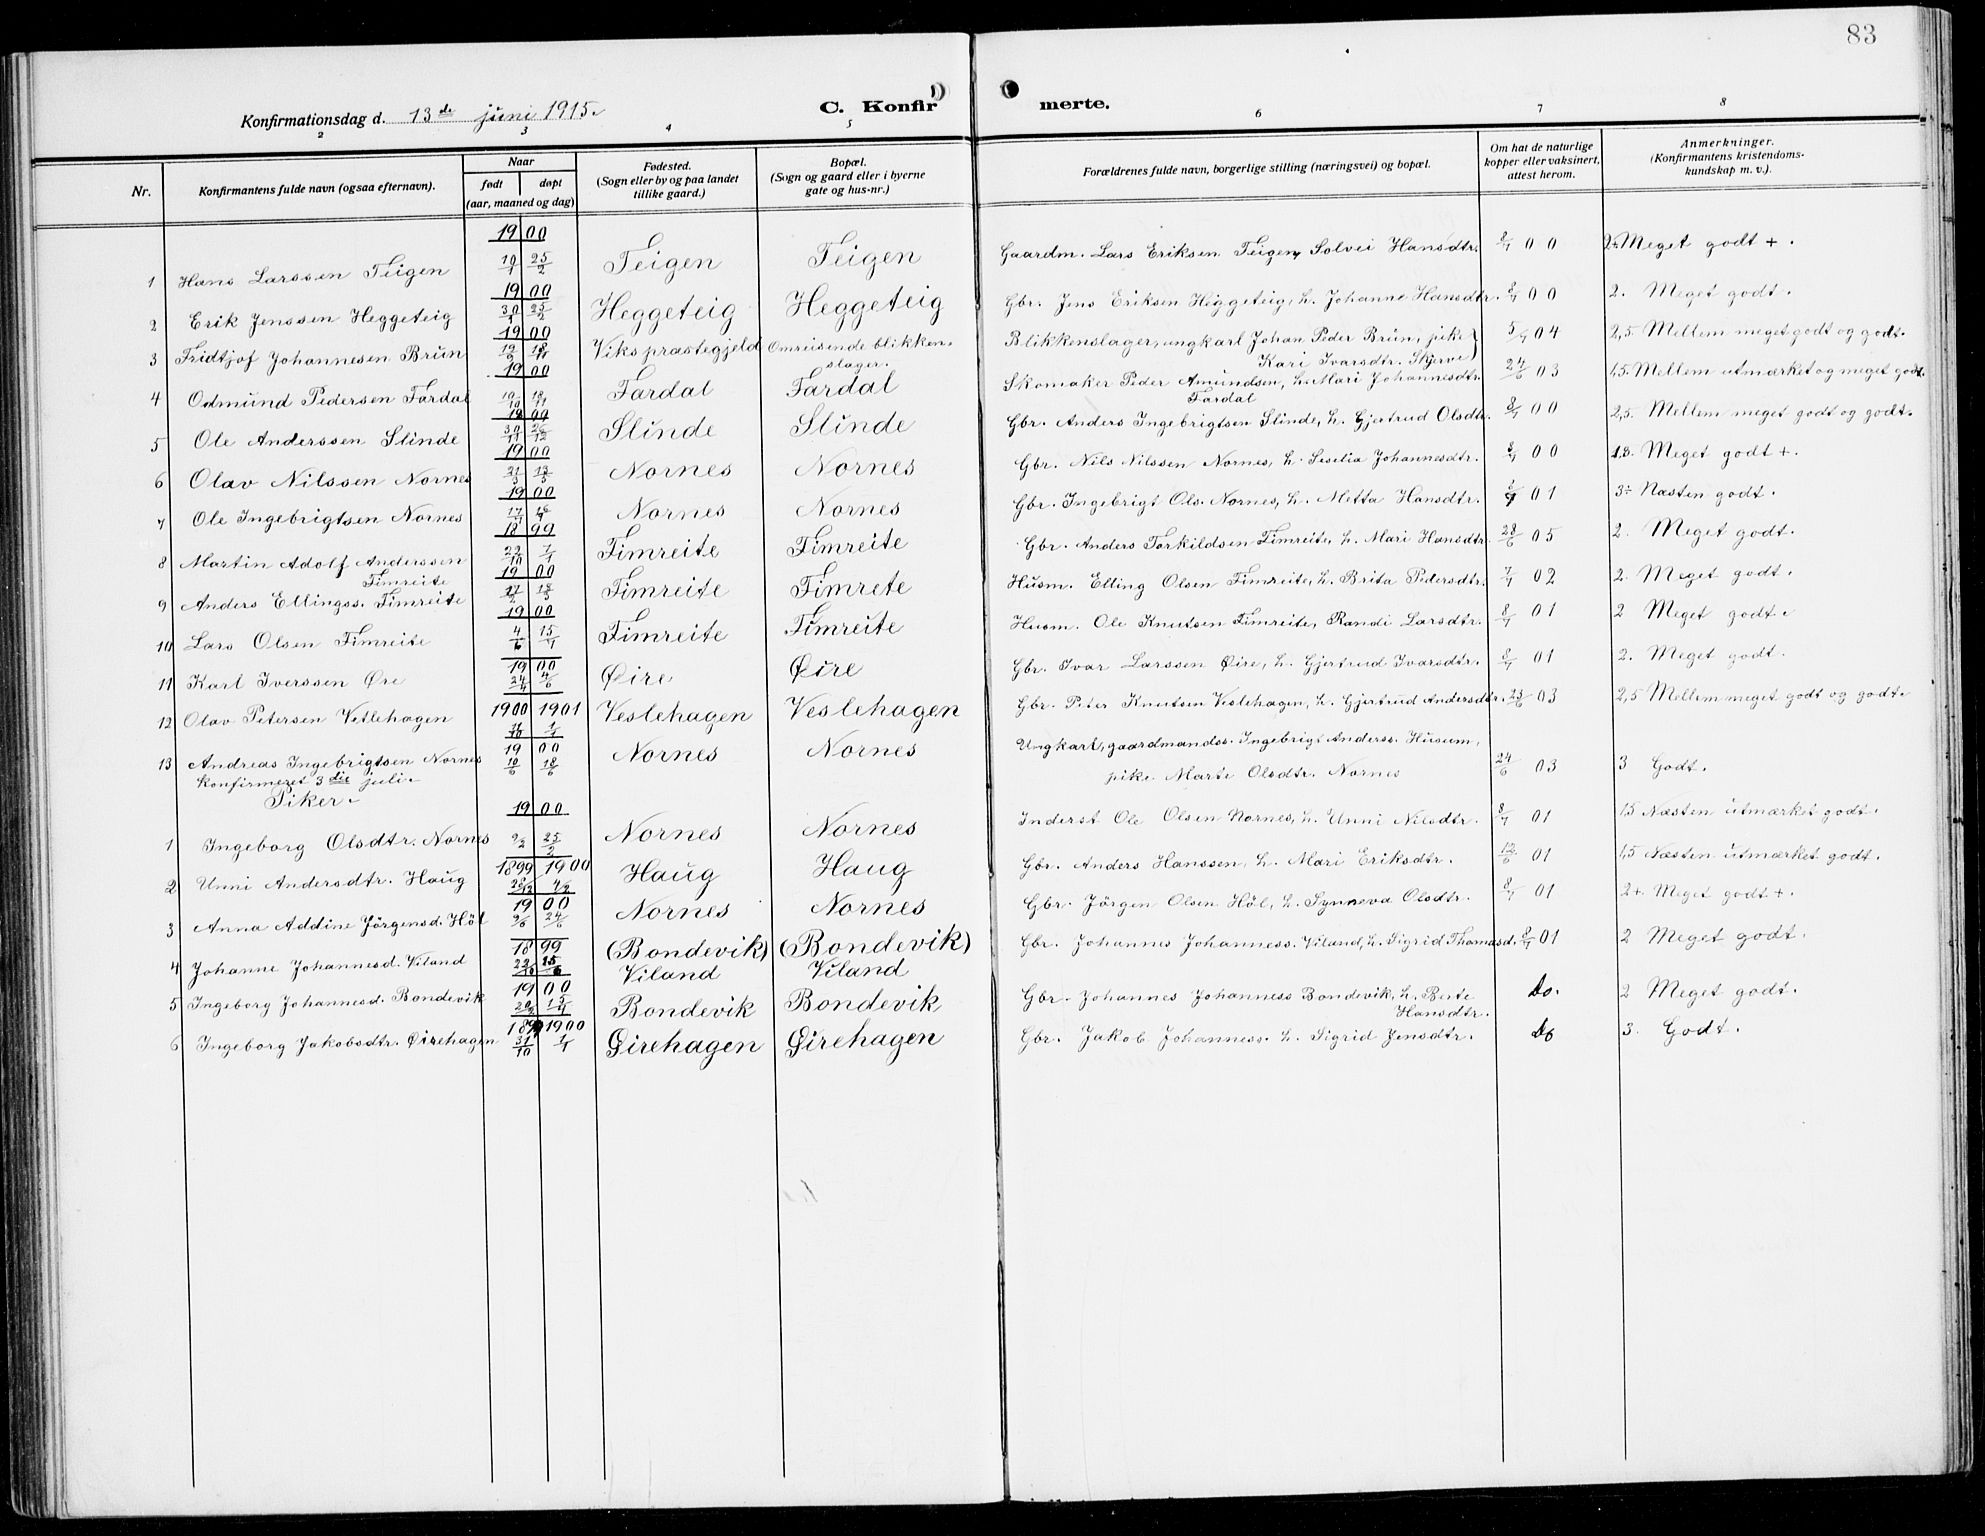 83
Konfirmationsdag d. 13de juni 1915.
C. Konfir merte.
2 3 4 5 6 7 8
Nr.
Konfirmantens fulde navn (ogsaa efternavn).
Naar
født døpt
(aar, maaned og dag)
Fødested.
(Sogn eller by og paa landet
tillike gaard.)
Bopæl.
(Sogn og gaard eller i byerne
gate og hus-nr.)
Forældrenes fulde navn, borgerlige stilling (næringsvei) og bopæl.
Om hat de naturlige
kopper eller vaksinert,
attest herom.
Anmerkninger.
(Konfirmantens kristendoms-
kundskap m. v.).
1900
1 Hans Larssen Teigen 10/1 25/2 Teigen Teigen Gaardm. Lars Eriksen Teigen, Solvei Hansdtr. 8/7 00 2+ Meget godt +.
1900
2 Erik Jenssen Heggeteig 30/1 25/2 Heggeteig Heggeteig Gbr. Jens Eriksen Heggeteig, h. Johanne Hansdtr. 8/7 00 2. Meget godt.
1900
3 Fridtjof Johannesen Brun Viks præstegjeld Omreisende blikken- Blikkenslager, ungkarl Johan Peder Brun, pike 5/7 04 2,5 Mellem meget godt og godt.
slager. Kari Ivarsdtr. Skjerve
1900
4 Odmund Pedersen Fardal Fardal Fardal Skomaker Peder Amundsen, h. Mari Johannesdtr. 24/6 03 1,5. Mellem utmærket og meget godt.
Fardal
1900
5 Ole Anderssen Slinde 30/11 26/12 Slinde Slinde Gbr. Anders Ingebrigtsen Slinde, h. Gjertrud Olsdtr. 8/7 00 2,5. Mellem meget godt og godt.
1900
6 Olav Nilssen Nornes 21/3 Nornes Nornes Gbr. Nils Nilssen Nornes, h. Sesilia Johannesdtr. 8/7 00 1,8. Meget godt +.
1900
7 Ole Ingebrigtsen Nornes Nornes Nornes Gbr. Ingebrigt Ols. Nornes, h. Metta Hansdtr. 01 3÷ Næsten godt.
1899
8 Martin Adolf Anderssen 22/10 1/1 Timreite Timreite Gbr. Anders Torkildsen Timreite, h. Mari Hansdtr. 28/6 05 2. Meget godt.
Timreite
1900
9 Anders Ellingss. Timreite Timreite Timrete Husm. Elling Olsen Timreite, h. Brita Pedersdtr. 7/7 02 2. Meget godt.
1900
10 Lars Olsen Timreite 4/6 15/7 Timreite Timreite Husm. Ole Knutsen Timreite, Randi Larsdtr. 8/7 01 2 Meget godt.
1900
11 Karl Iverssen Øre 24/4 4/6 Øire Øire Gbr. Ivar Larssen Øire, h. Gjertrud Ivarsdtr. 8/7 01 2. Meget godt.
1900 1901
12 Olav Petersen Vetlehagen 11/10 1/1 Veslehagen Veslehagen Gbr. Peter Knutsen Veslehagen, h. Gjertrud Andersdtr. 03 2,5 Mellem meget godt og godt.
1900
13 Andreas Ingebrigtsen Nornes 10/6 18/6 Nornes Nornes Ungkarl, gaardmandss. Ingebrigt Anderss. Husum,
konfirmeret 3die juli. pike Marte Olsdtr. Nornes 24/6 03 3 Godt.
Piker.
1900
1 Ingeborg Olsdtr. Nornes 9/2 25/2 Nornes Nornes Inderst Ole Olsen Nornes, h. Unni Nilsdtr. 8/7 01 1,5 Næsten utmærket godt.
1899 1900
2 Unni Andersdtr. Haug 28/12 4/2 Haug Haug Gbr. Anders Hanssen, h. Mari Eriksdtr. 12/6 01 1,5 Næsten utmærket godt.
1900
3 Anna Addine Jörgensd. Höl 9/6 24/6 Nornes Nornes Gbr. Jörgen Olsen Höl, h. Synneva Olsdtr. 8/7 01 2+ Meget godt +.
1899
4 Johanne Johannesd. Viland (Bondevik) (Bondevik) Gbr. Johannes Johanness. Viland, h. Sigrid Thomasd. 8/7 01 2 Meget godt.
Viland Viland
1900
5 Ingeborg Johannesd. Bondevik Bondevik Bondevik Gbr. Johannes Johanness Bondevik, h. Berte Do. 2 Meget godt.
Hansdtr.
1899 1900
6 Ingeborg Jakobsdtr. Øirehagen 31/10 1/1 Øirehagen Øirehagen Gbr. Jakob Johanness. h. Sigrid Jensdtr. Do 3. Godt.